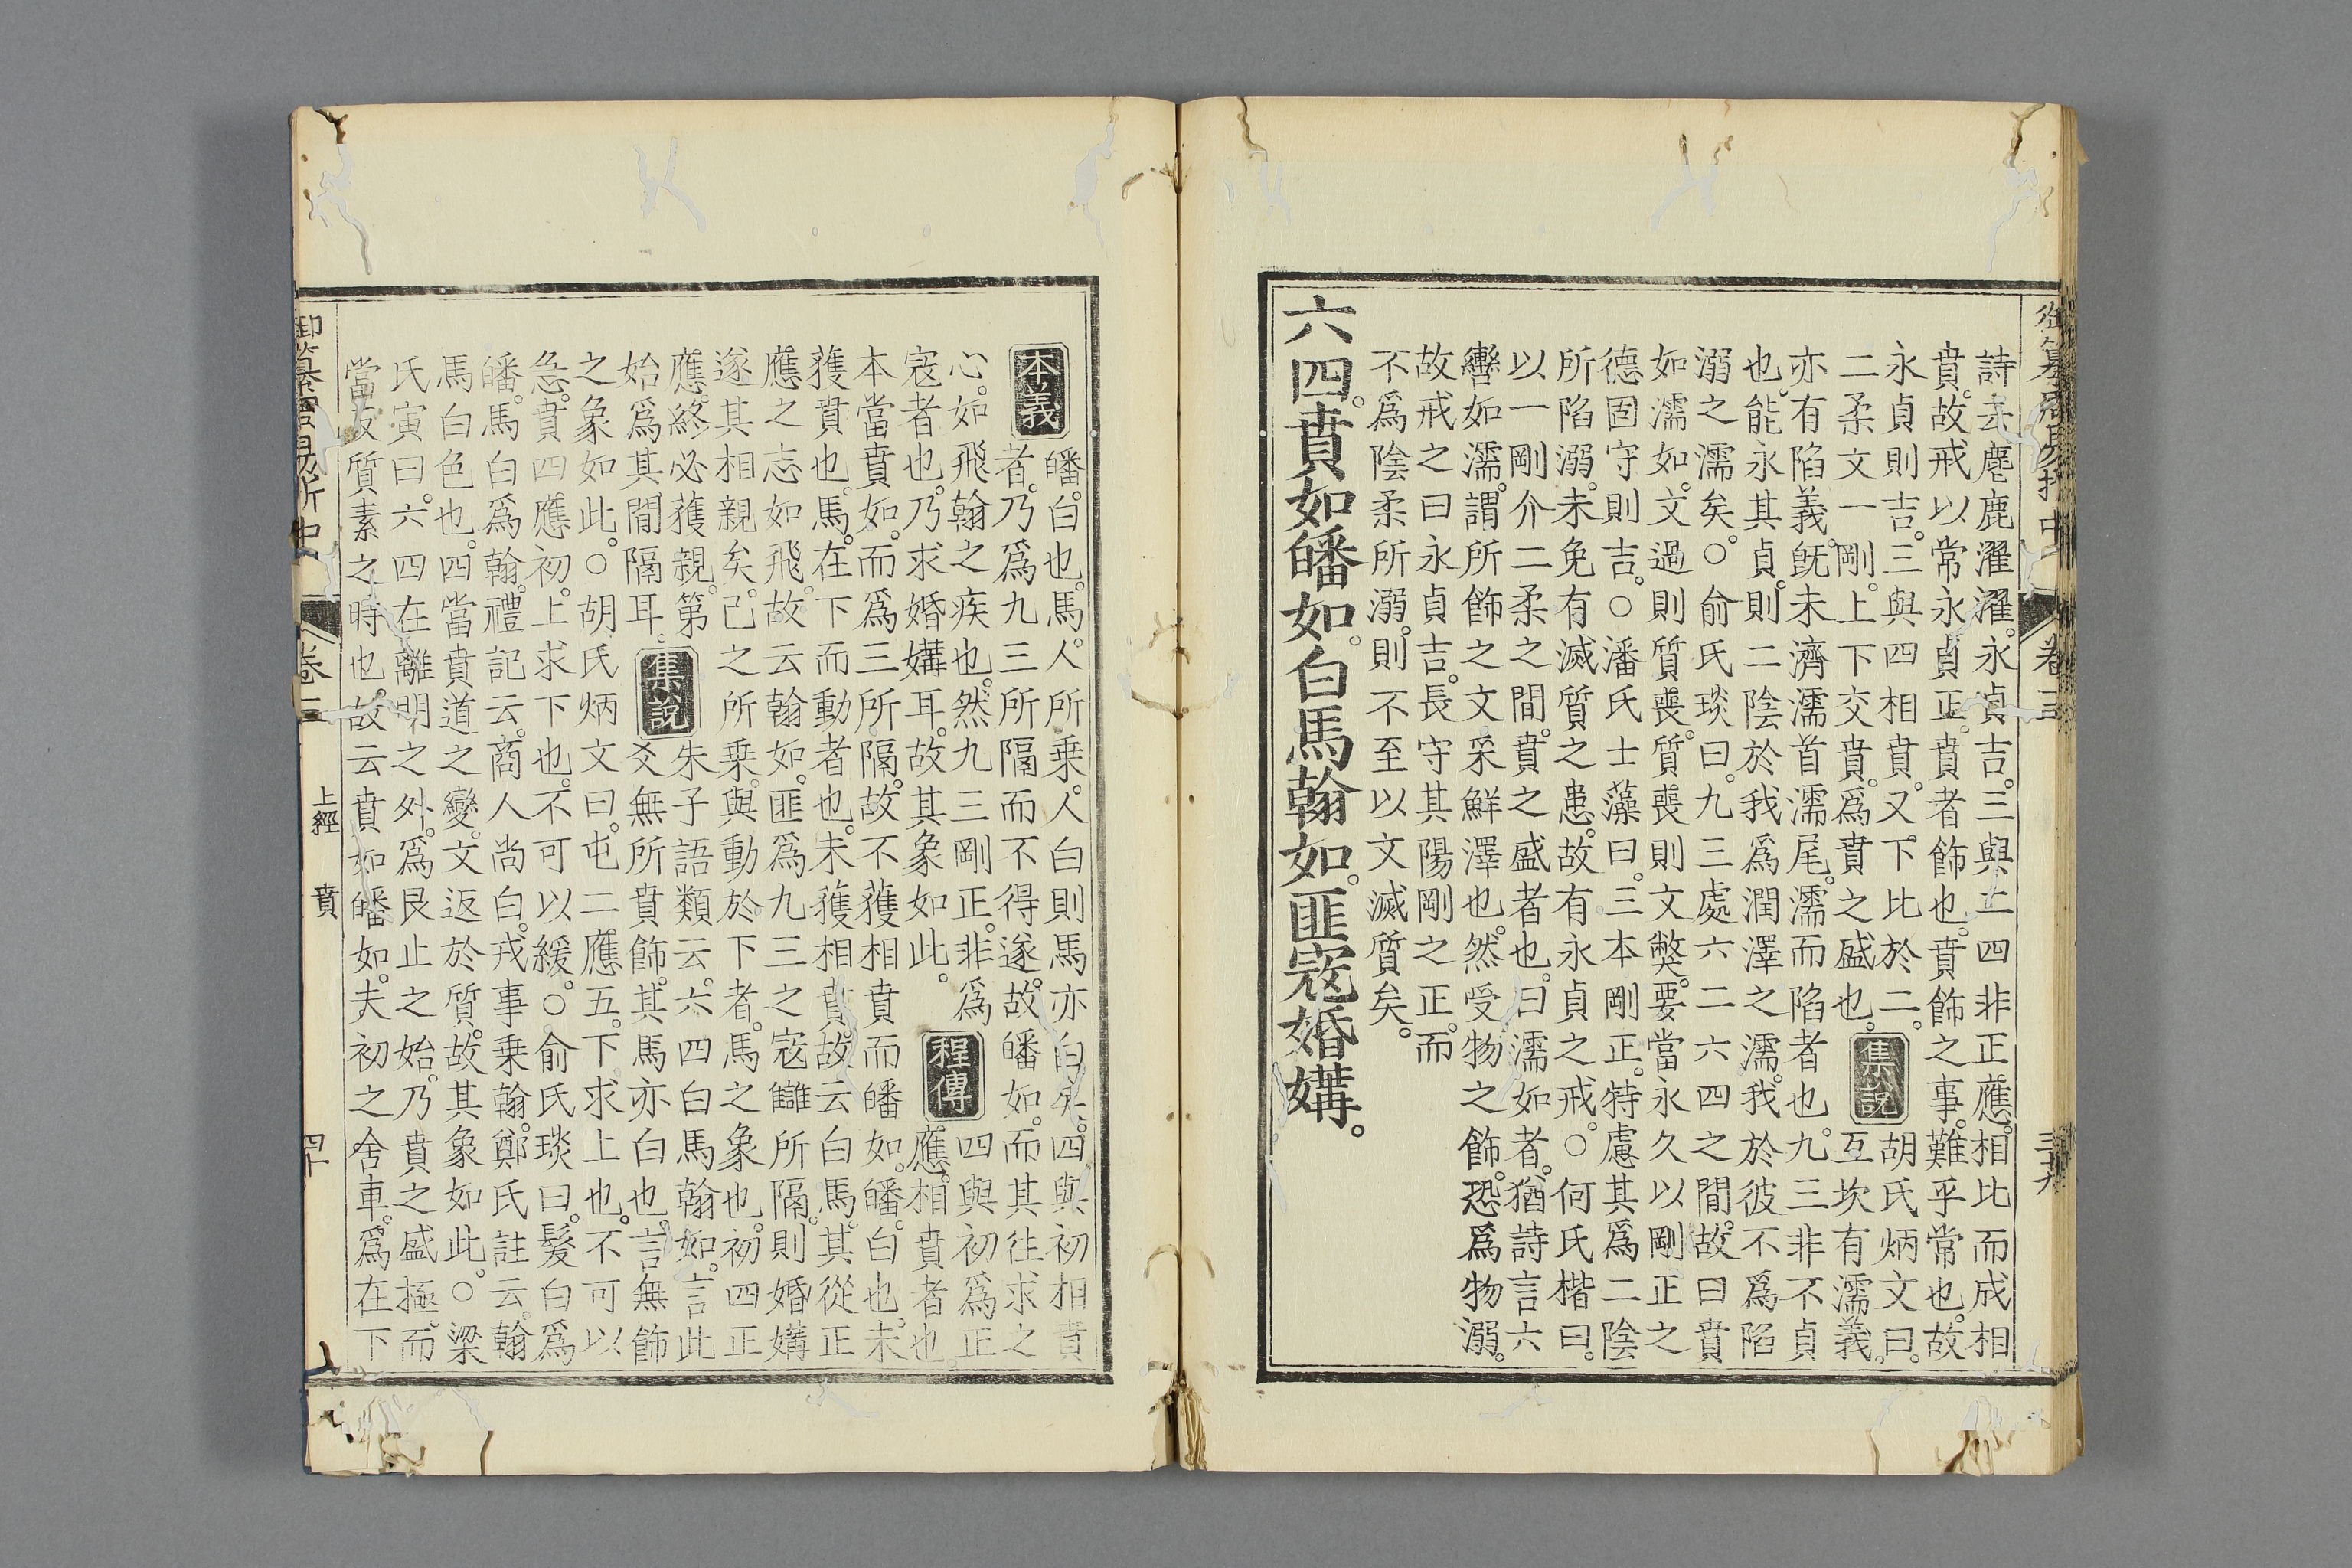 御纂周易折中 卷三 三十九
詩云麀鹿濯濯。永貞吉。三與二四非正應。相比而成相
賁。故戒以常永貞正。賁者飾也。賁飾之事。難乎常也。故
永貞則吉。三與四相賁。又下比於二。
二柔文一剛。上下交賁。爲賁之盛也。
集說
胡氏炳文曰。
互坎有濡義。
亦有陷義。旣未濟濡首濡尾。濡而陷者也。九三非不貞
也。能永其貞。則二陰於我爲潤澤之濡。我於彼不爲陷
溺之濡矣。○俞氏琰曰。九三處六二六四之閒。故曰賁
如濡如。文過則質喪。質喪則文獘。要當永久以剛正之
德固守則吉。○潘氏士藻曰。三本剛正。特慮其爲二陰
所陷溺。未免有滅質之患。故有永貞之戒。○何氏楷曰。
以一剛介二柔之間。賁之盛者也。曰濡如者。猶詩言六
轡如濡。謂所飾之文采鮮澤也。然受物之飾。恐爲物溺。
故戒之曰永貞吉。長守其陽剛之正。而
不爲陰柔所溺。則不至以文滅質矣。
六四。賁如皤如。白馬翰如。匪寇婚媾。
本義
皤。白也。馬人所乘。人白則馬亦白矣。四與初相賁
者。乃爲九三所隔而不得遂。故皤如。而其往求之
心。如飛翰之疾也。然九三剛正。非爲
寇者也。乃求婚媾耳。故其象如此。
程傳
四與初爲正
應。相賁者也。
本當賁如。而爲三所隔。故不獲相賁而皤如。皤。白也。未
獲賁也。馬。在下而動者也。未獲相賁。故云白馬。其從正
應之志如飛。故云翰如。匪爲九三之寇讎所隔。則婚媾
遂其相親矣。己之所乗。與動於下者。馬之象也。初四正
應。終必獲親。第
始爲其閒隔耳。
集說
朱子語類云。六四白馬翰如。言此
爻無所賁飾。其馬亦白也。言無飾
之象如此。○胡氏炳文曰。屯二應五。下求上也。不可以
急。賁四應初。上求下也。不可以緩。○俞氏琰曰。髮白爲
皤。馬白爲翰。禮記云。商人尚白。戎事乗翰。鄭氏註云。翰
馬白色也。四當賁道之變。文返於質。故其象如此。○梁
氏寅曰。六四在離明之外。爲艮止之始。乃賁之盛極。而
當反質素之時也。故云賁如皤如。夫初之舍車。爲在下
御纂周易折中 卷三 上經 賁 四十